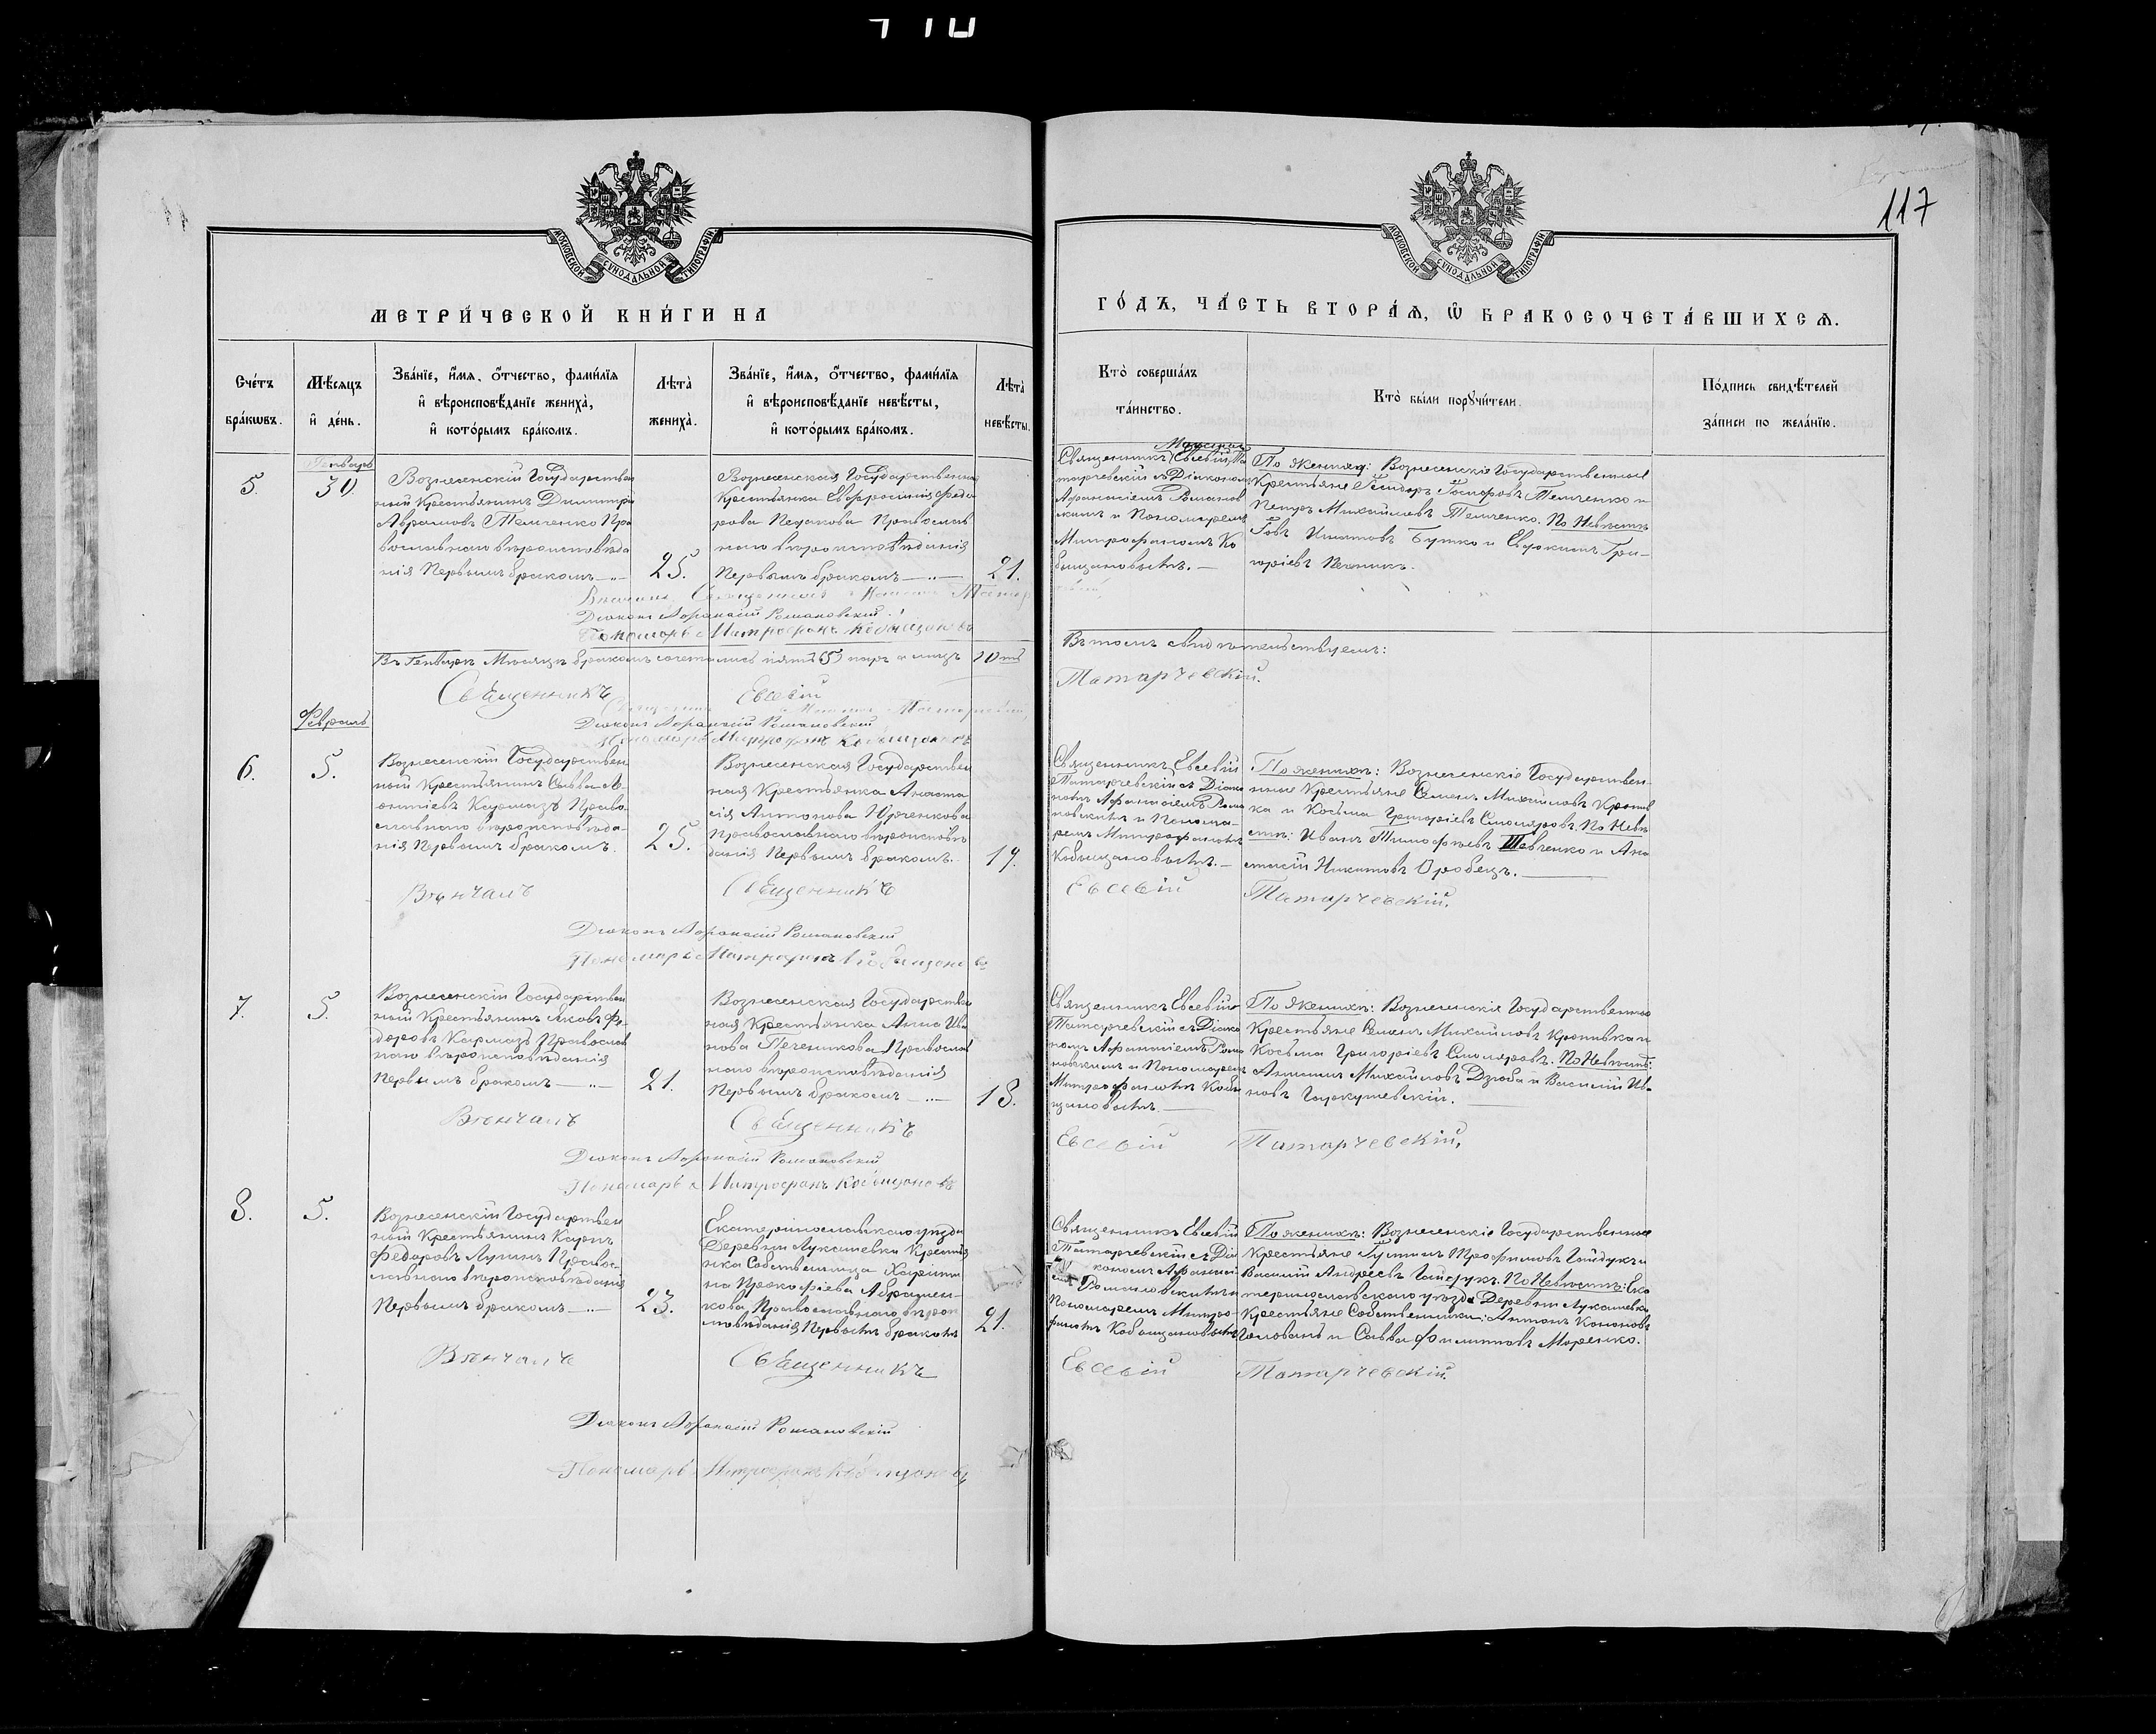 117
МОСКОВСКОЙ СУНОДАЛЬНОЙ ТИПОГРАФІИ
МОСКОВСКОЙ СУНОДАЛЬНОЙ ТИПОГРАФІИ
МЕТРИ́ЧЕСКОЙ КНИ́ГИ НА
ГО́ДЪ, ЧА́СТЬ ВТОРА́Ѧ, Ѽ БРАКОСОЧЕТА́ВШИХСѦ.
Сче́тъ
бра́кѡвъ.
Мѣ́сяцъ
и҆ де́нь.
Зва́нїе, и҆́мя, о҆́тчество, фами́лїя
и҆ вѣроисповѣ́данїе жениха̀,
и҆ кото́рымъ бра́комъ.
Лѣта̀
жениха̀.
Зва́нїе, и҆́мя, о҆́тчество, фами́лїя
и҆ вѣроисповѣ́данїе невѣ́сты,
и҆ кото́рымъ бра́комъ.
Лѣта̀
невѣ́сты.
Кто̀ соверша́лъ
та́инство.
Кто̀ бы́ли порꙋчи́тели.
По́дпись свидѣ́телей
за́писи по жела́нїю.
Генварь
5.
30.
Вознесенскій Государствен
ный Крестьянинъ Димитрій
Аврамовъ Темченко Пра
вославнаго вѣроисповѣда
нія Первымъ бракомъ
25.
Вознесенская Государственная
Крестьянка Евфросинія Федо
рова Православ
наго вѣроисповѣданія
Первымъ бракомъ
21.
Священникъ Евсевій Та
тарчевскій съ Діакономъ
Афанасіемъ Романов
скимъ и Пономаремъ
Митрофаномъ Ко
бищановымъ.
По женихѣ: Вознесенскіе Государственные
Крестьяне Іосифовъ Темченко и
Петръ Михайловъ Темченко. По Невѣстѣ
Бутко и Евдокимъ Гри-
горіевъ
Діаконъ Афанасій Романовскій
Пономарь Митрофанъ Кобищановъ
Въ Генварѣ Мѣсяцѣ бракомъ сочетались пять (5) паръ а лицъ 10ть
Въ томъ свидѣтельствуемъ:
Священникъ Евсевій Татарчевскій.
Діаконъ Афанасій Романовскій
Пономарь Митрофанъ Кобищановъ
Февраль
6.
5.
Вознесенскій Государствен
ный Крестьянинъ Савва Ле
онтіевъ Кармазъ Право
славнаго вѣроисповѣда-
нія Первымъ бракомъ.
25.
Вознесенская Государствен
ная Крестьянка Анаста
сія Антонова Юрченкова
Православнаго вѣроисповѣ
данія Первымъ бракомъ.
19.
Священникъ Евсевій
Татарчевскій съ Діако
номъ Афанасіемъ Рома
новскимъ и Понома-
ремъ Митрофаномъ
Кобищановымъ.
По женихѣ: Вознесенскіе Государствен-
ные Крестьяне Семенъ Михайловъ Кропив
ка и Косьма Григоріевъ Столяровъ. По Невѣ
стѣ: Иванъ Тимофѣевъ Шевченко и Ана
стасій Никитовъ Оробецъ.
Вѣнчалъ Священникъ Евсевій Татарчевскій.
Діаконъ Афанасій Романовскій
Пономарь Митрофанъ Кобищановъ
7.
5.
Вознесенскій Государствен
ный Крестьянинъ Яковъ Фе
доровъ Кармазъ Православ
наго вѣроисповѣданія
Первымъ бракомъ
21.
Вознесенская Государствен
ная Крестьянка Анна Ива
нова Печеникова Православ
наго вѣроисповѣданія
Первымъ бракомъ
18.
Священникъ Евсевій
Татарчевскій съ Діако
номъ Афанасіемъ Рома
новскимъ и Пономаремъ
Митрофаномъ Коби
щановымъ.
По женихѣ: Вознесенскіе Государственные
Крестьяне Семенъ Михайловъ Кропивка и
Косьма Григоріевъ Столяровъ. По Невѣстѣ:
Михайловъ Дзюба и Василій Ива
новъ
Вѣнчалъ Священникъ Евсевій Татарчевскій.
Діаконъ Афанасій Романовскій
Пономарь Митрофанъ Кобищановъ
8.
5.
Вознесенскій Государствен
ный Крестьянинъ Карпъ
Федоровъ Лупинъ Правос-
лавнаго вѣроисповѣданія
Первымъ бракомъ
23.
Екатеринославскаго уѣзда
Деревни Лукашевки Крестья
нка Собственница Харити
на Прокофіева Абрамен-
кова, Православнаго вѣроис
повѣданія Первымъ бракомъ
21.
Священникъ Евсевій
Татарчевскій съ Діа
кономъ Афанасі
емъ Романовскимъ и
Пономаремъ Митро-
фаномъ Кобищановымъ
По женихѣ: Вознесенскіе Государственные
Крестьяне Трофимовъ Гайдукъ и
Василій Андреевъ Гайдукъ. По Невѣстѣ: Ека
теринославскаго уѣзда Деревни Лукашевки
Крестьяне Собственники: Антонъ Кононовъ
Головань и Савва Филиповъ Моренко.
Вѣнчалъ Священникъ Евсевій Татарчевскій.
Діаконъ Афанасій Романовскій
Пономарь Митрофанъ Кобищановъ